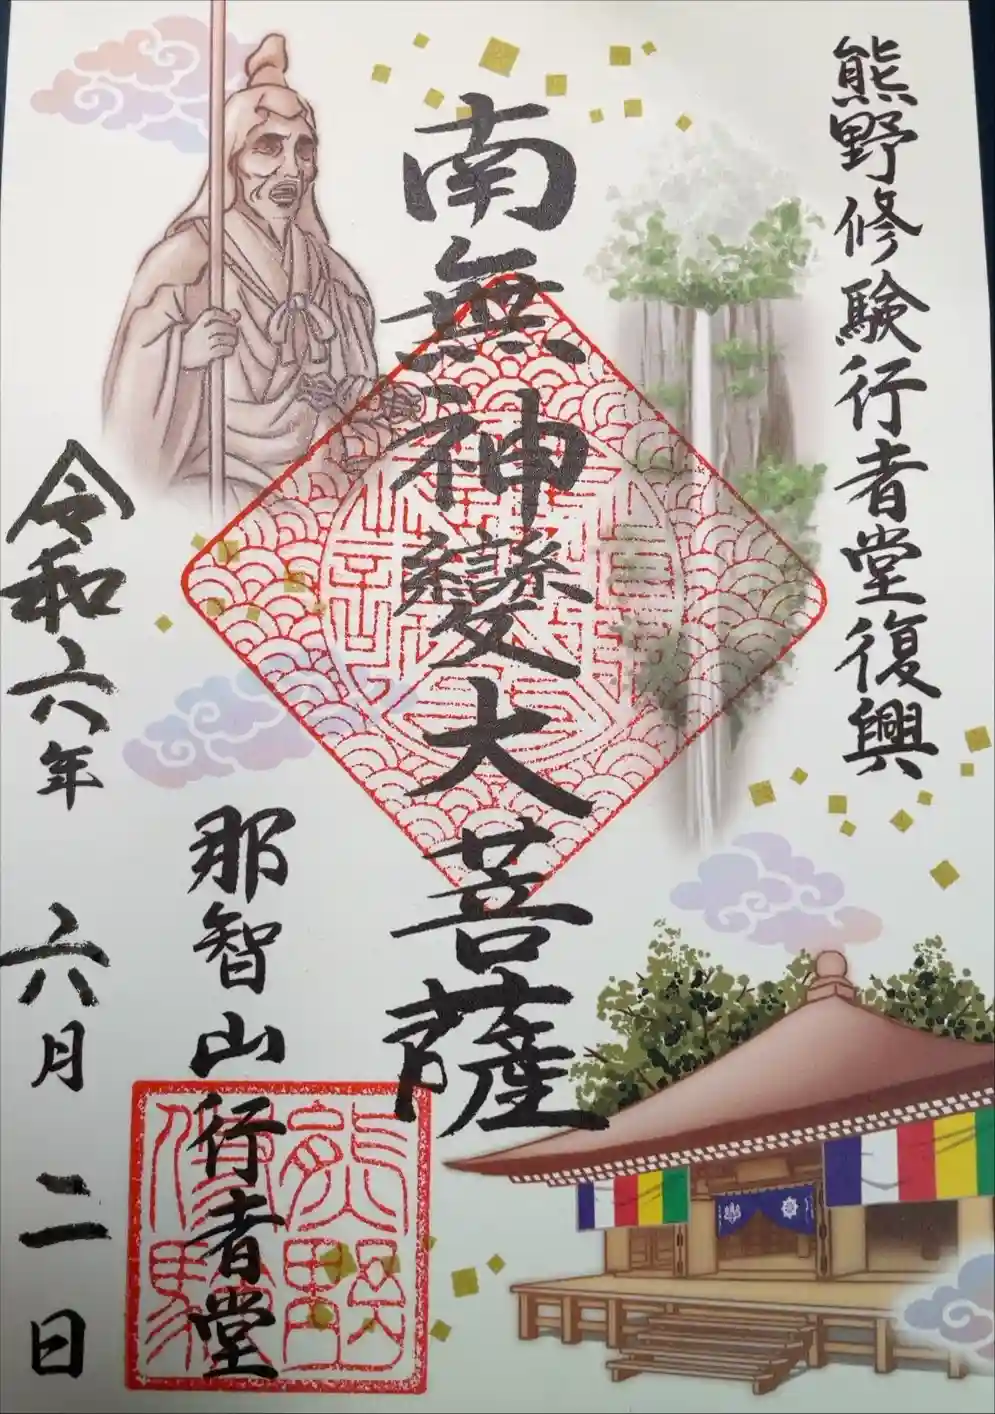 熊野修験行者堂復興
南無神變大菩薩
那智山行者堂
令和六年 六月二日
熊野
修験